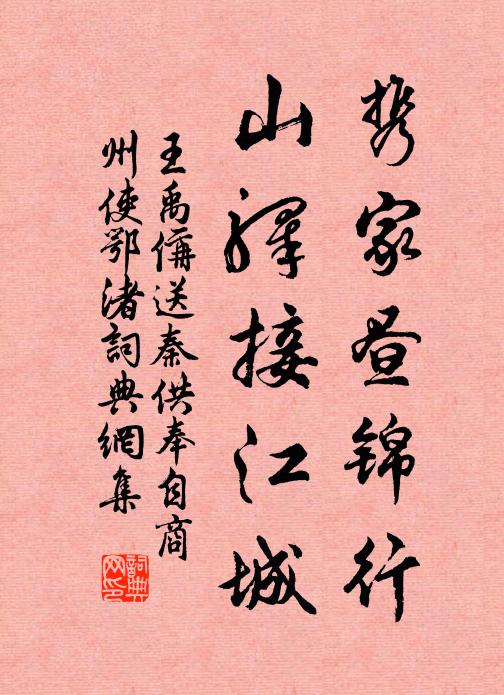 携家昼锦行
山驿接江城
王禹偁送秦供奉自商
州使鄂渚詞典網集
詞典网印